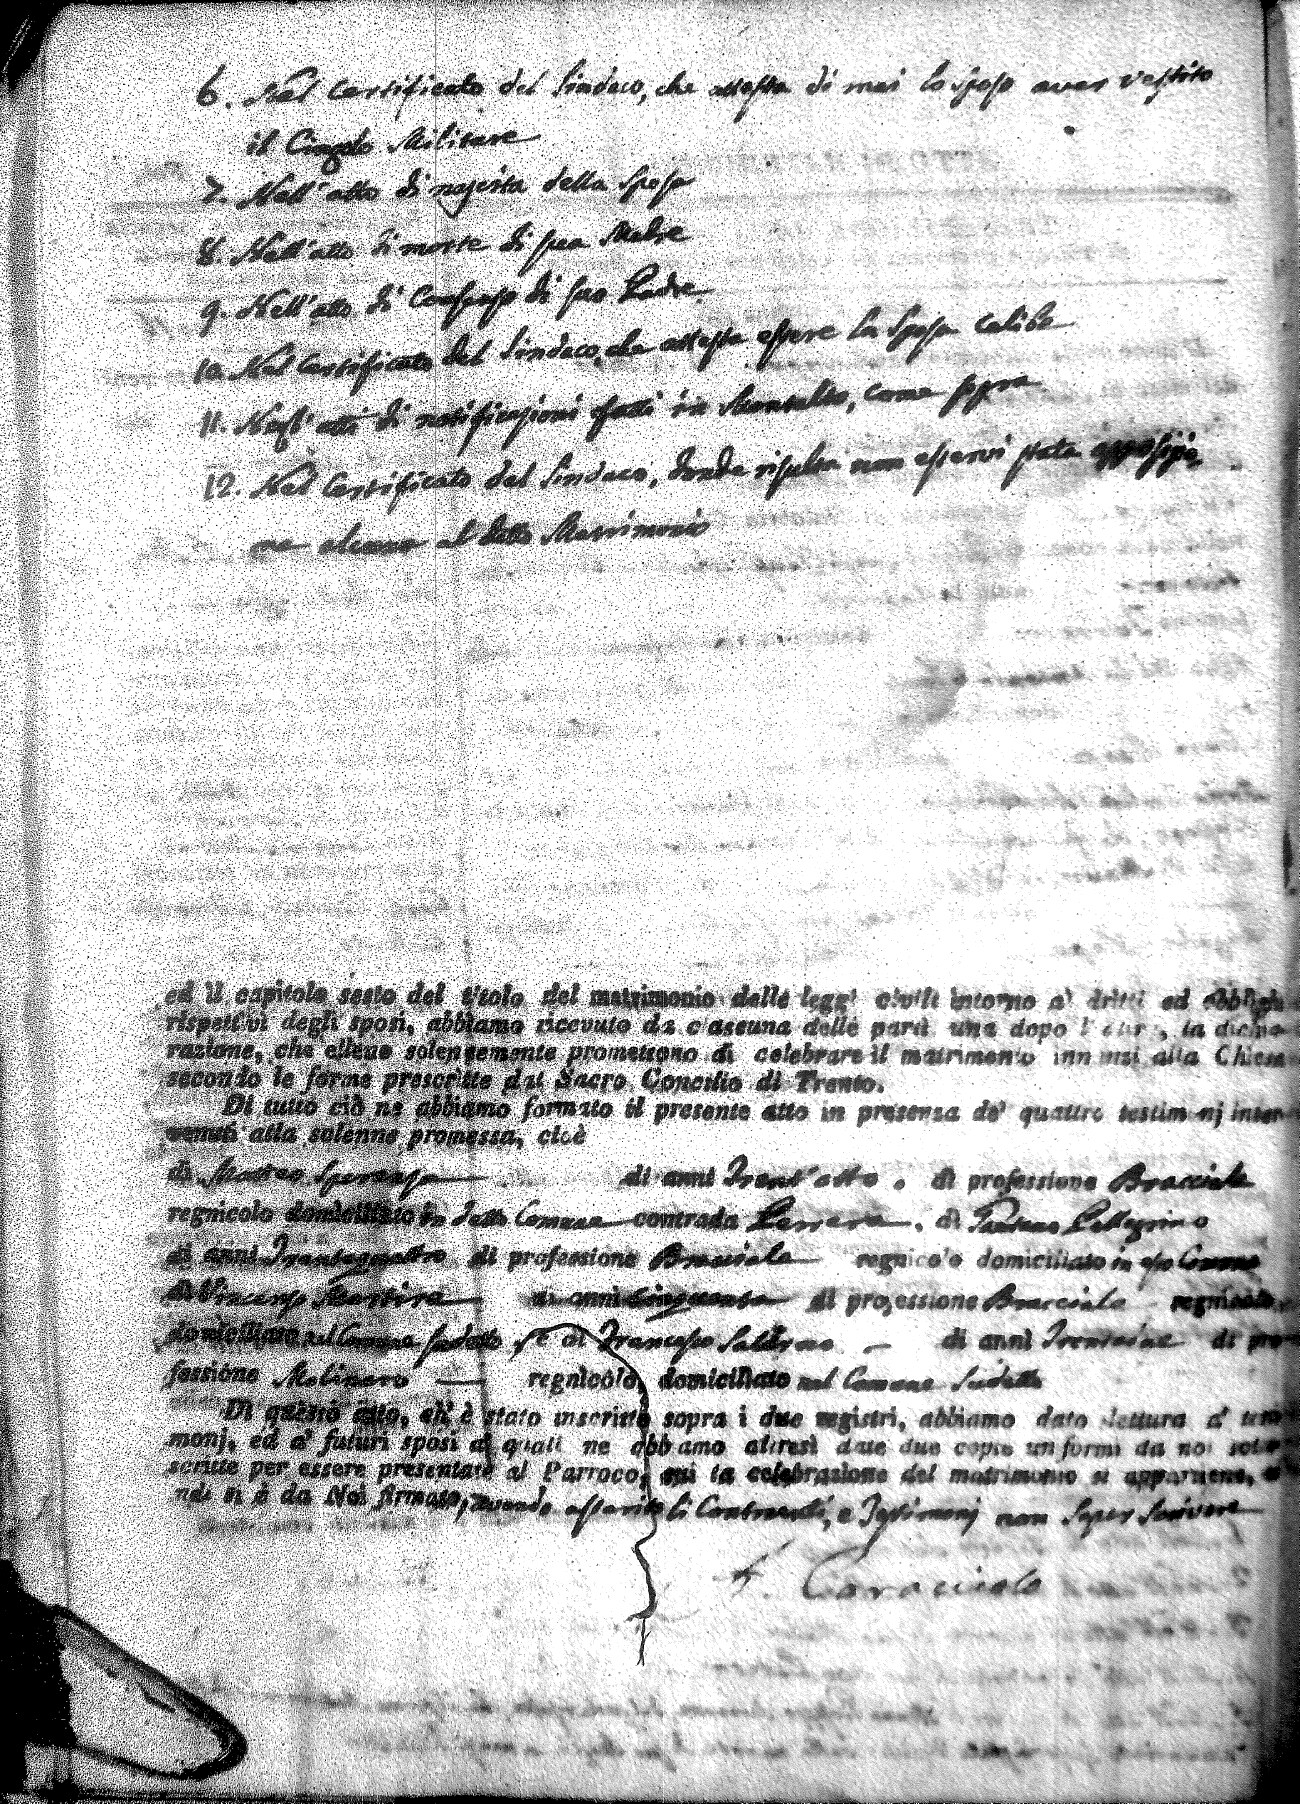 6. Nel Certificato del Sindaco, che attesta di mai lo sposo aver vestito
il Cingolo Militare
7. Nell'atto di nascita della Sposa
8. Nell'atto di morte di sua Madre
9. Nell'atto di Consenso di suo Padre
10. Nel Certificato del Sindaco, che attesta essere la Sposa Celibe
11. Negl'atti di notificazioni fatti in Montalto, come sopra
12. Nel Certificato del Sindaco, donde risulta non esservi stata opposizio
ne alcuna al detto Matrimonio
ed il capitolo sesto del titolo del matrimonio delle leggi civili intorno a' dritti ed obblighi
rispettivi degli sposi, abbiamo ricevuto da ciascuna delle parti una dopo l'altra, la dichia-
razione, che elleno solennemente promettono di celebrare il matrimonio innanzi alla Chiesa
secondo le forme prescritte dal Sacro Concilio di Trento.
Di tutto ciò ne abbiamo formato il presente atto in presenza de' quattro testimonj inter-
venuti alla solenne promessa, cioè
di Matteo Speranza di anni Trent'otto . di professione Bracciale
regnicolo domiciliato in detto Comune contrada , di Gaetano Pellegrino
di anni Trentaquattro di professione Bracciale regnicolo domiciliato in esso Comune
di Vincenzo Martire di anni Cinquanta di professione Bracciale regnicolo
domiciliato nel Comune sudetto , e di Francesco Salerno di anni di pro-
fessione Molinaro regnicolo, domiciliato nel Comune sudetto
Di questo atto, ch' è stato inscritto sopra i due registri, abbiamo dato lettura a' testi-
monj, ed a' futuri sposi a' quali ne abbiamo altresì date due copie uniformi da noi sotto-
scritte per essere presentate al Parroco, cui la celebrazione del matrimonio si appartiene, e
ndi si è da Noi firmato, avendo asserito li Contraenti, e Testimonj non saper scrivere
F. Caracciolo